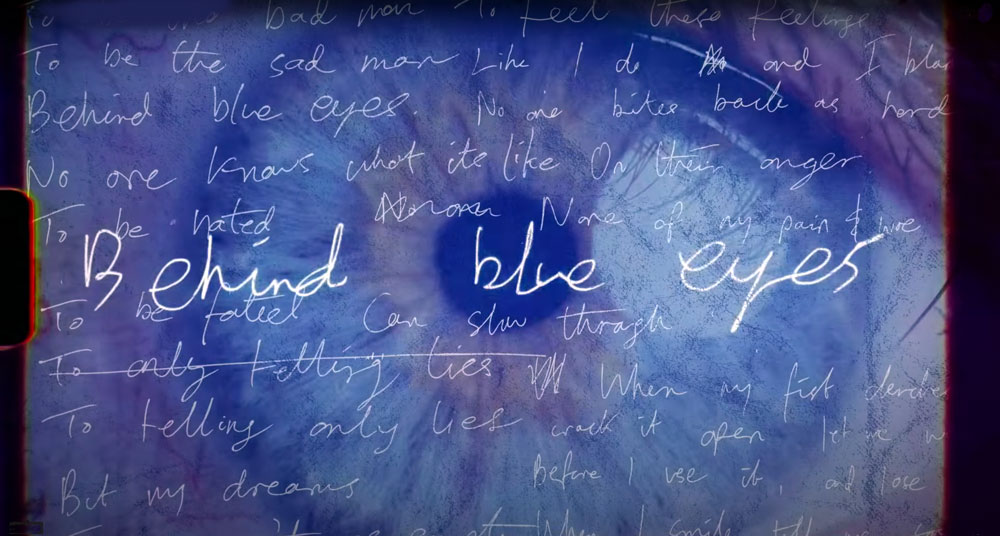 bad man To feel these feelings
To be the sad man Like I do and I bla
Behind blue eyes. No one bites back as hard
No one knows what its like On their anger
To be hated None of my pain &
Behind blue eyes
To be fated Can show through
To only telling lies When my fist
To telling only lies crack it open let me
But my dreams Before I use it, and lose
When I smile tell